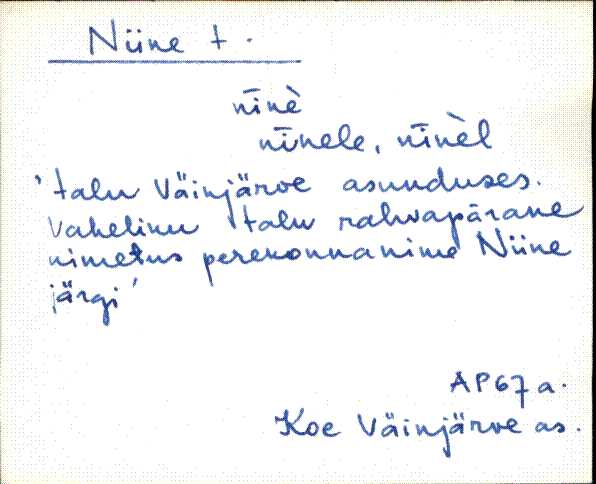 Niine t.
nīnè
nīnele, nīnèl
'talu Väinjärve asunduses.
Vahelinu talu rahvapärane
nimetus perekonnanime Niine
järgi'
AP67a.
Koe Väinjärve as.